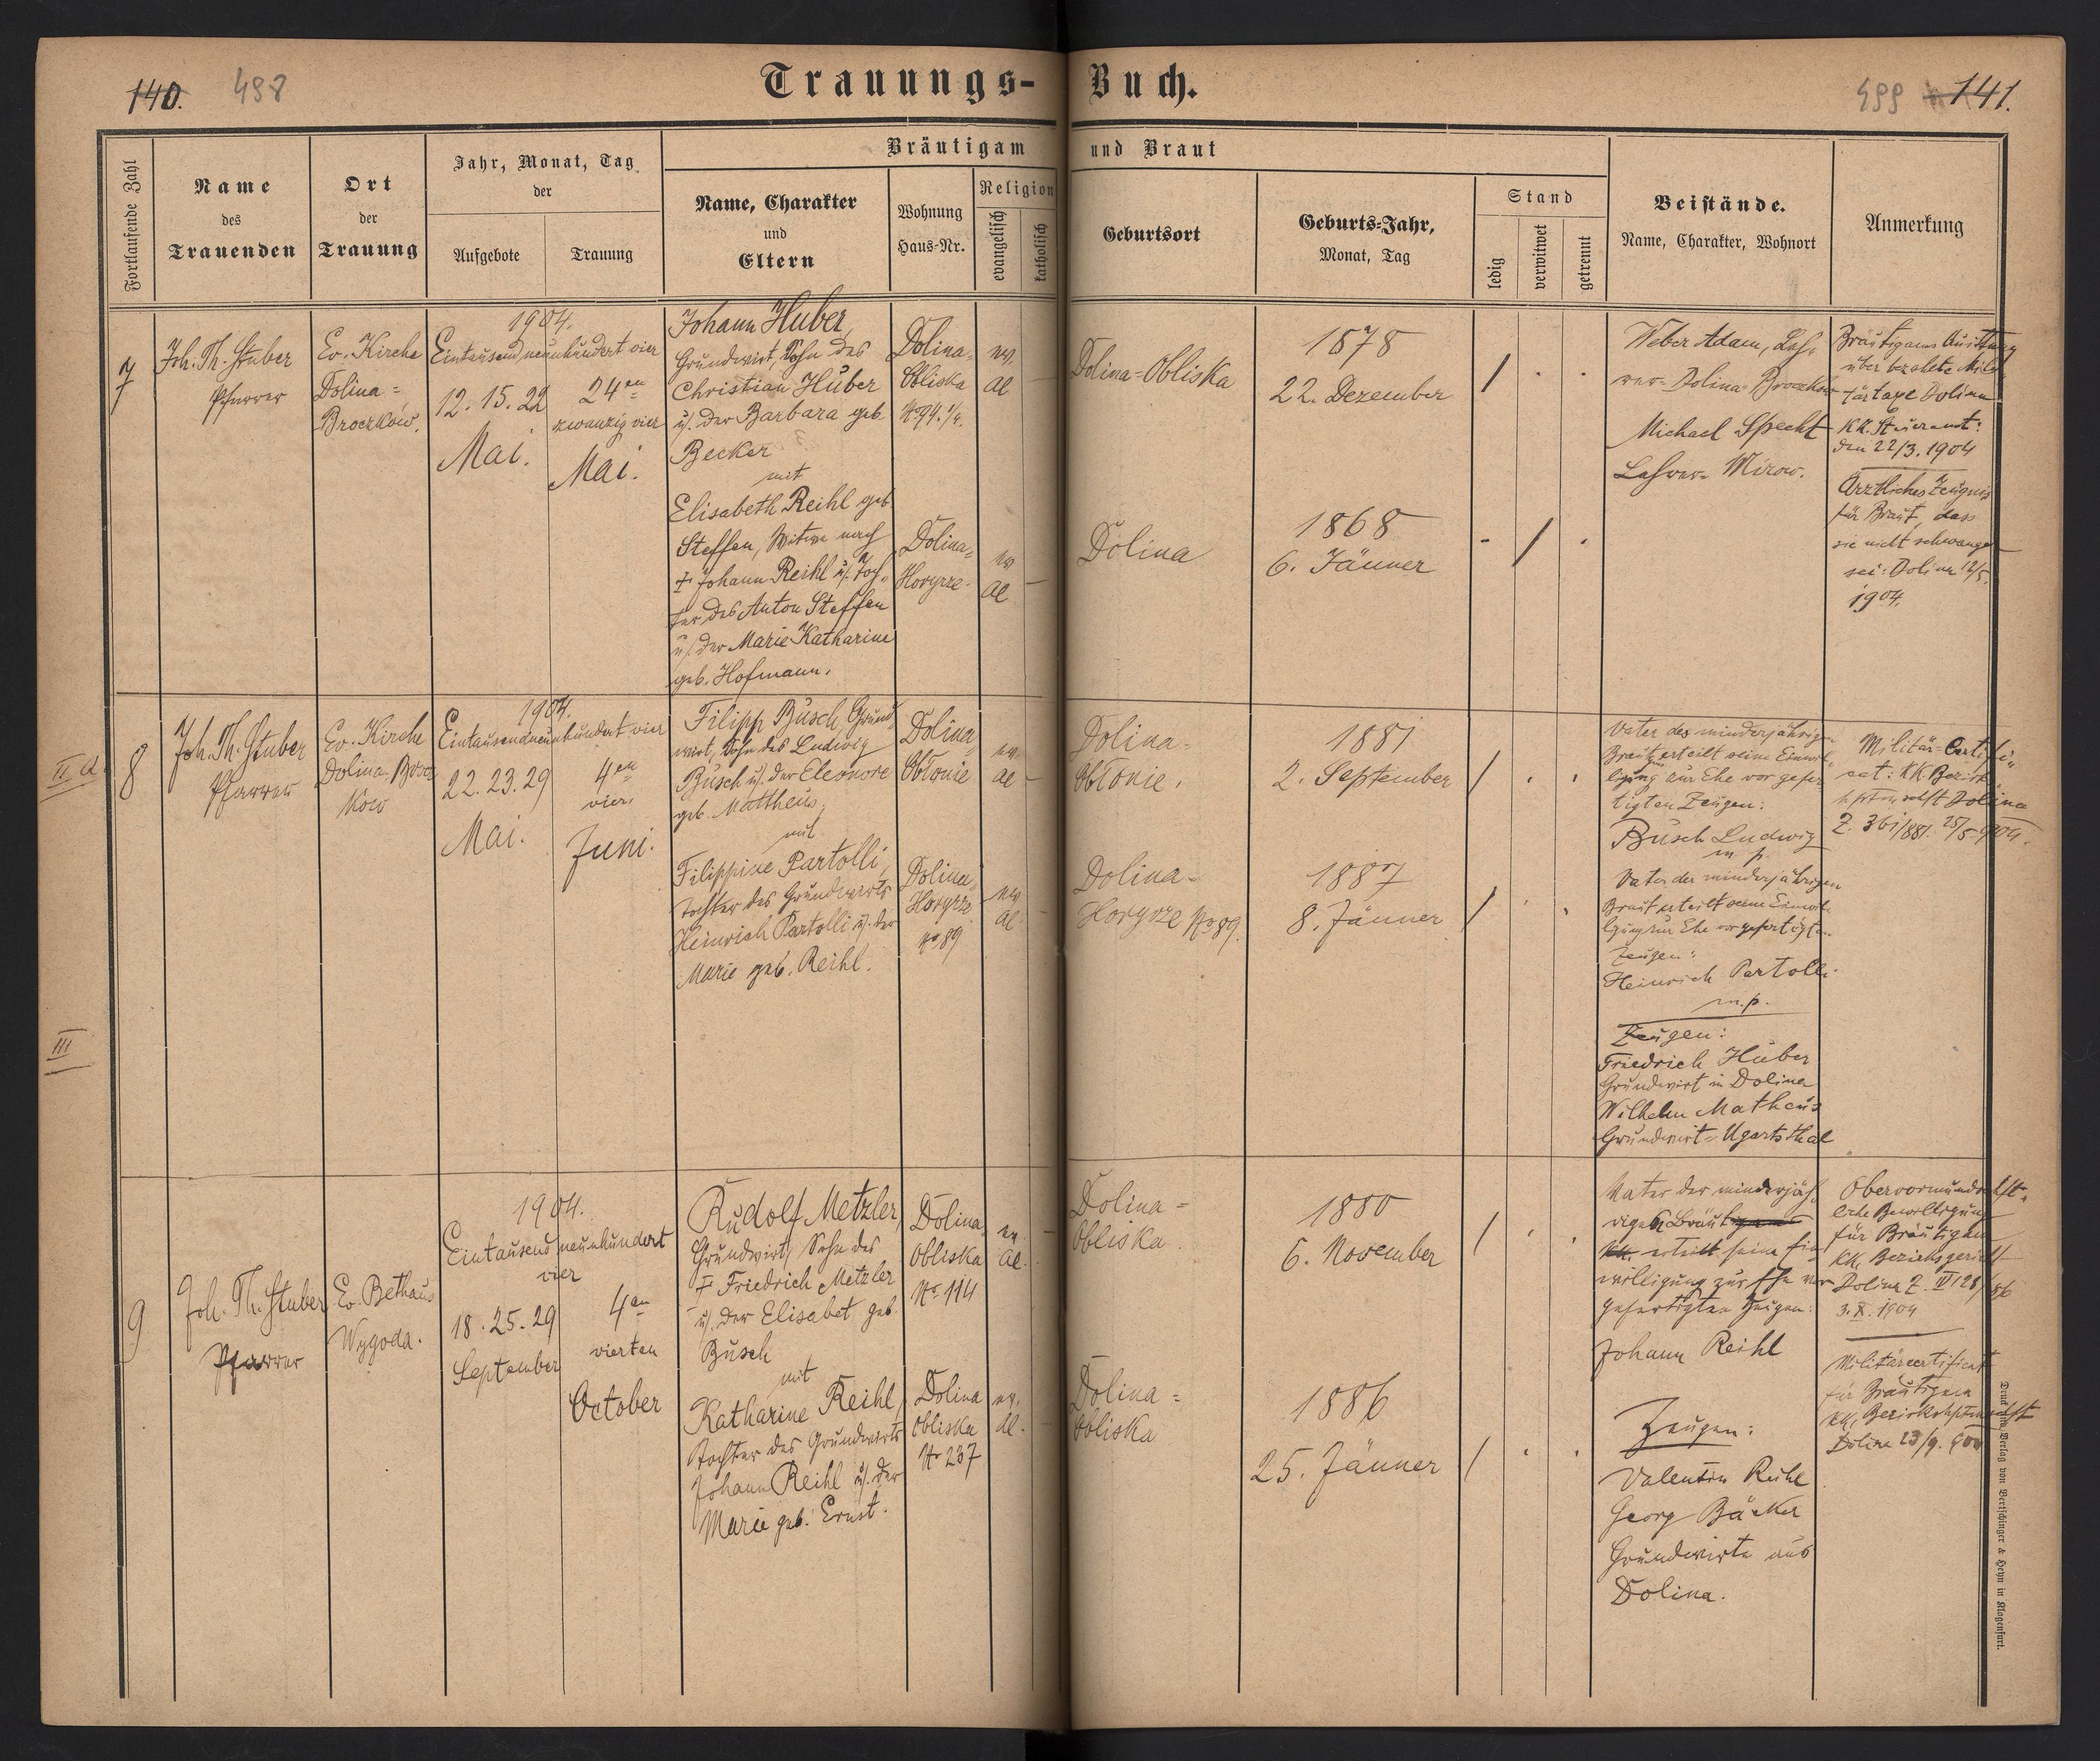 140. 498
Trauungs-Buch.
499 141.
Fortlaufende Zahl
Name
des
Trauenden
Ort
der
Trauung
Jahr, Monat, Tag
der
Aufgebote
Trauung
Bräutigam und Braut
Name, Charakter
und
Eltern
Wohnung
Haus-Nr.
Religion
evangelisch
katholisch
Geburtsort
Geburts-Jahr,
Monat, Tag
Stand
ledig
verwitwet
getrennt
Beistände.
Name, Charakter, Wohnort
Anmerkung
7
Joh. Th. Stuber
Pfarrer
Ev. Kirche
Dolina-
Broczków.
1904.
Eintausend neunhundert vier
12. 15. 22
Mai.
24en
zwanzig vier
Mai.
Johann Huber,
Grundwirt, Sohn des
Christian Huber
u. der Barbara geb.
Becker
mit
Elisabeth Reihl geb.
Steffen, Witwe nach
† Johann Reihl u. Toch-
ter des Anton Steffen
u. der Marie Katharine
geb. Hofmann.
Dolina-
Obliska
No 94. 1/4.
Dolina-
Horyrze.
ev.
AC
ev
AC
Dolina-Obliska
Dolina
1878
22. Dezember
1868
6. Jänner
Weber Adam, Leh-
rer- Dolina-Broczkow
Michael Specht
Lehrer- Mirow.
Bräutigams Quittung
über bezahlte Mili-
tärtaxe Dolina
KK. Steueramt:
den 22/3. 1904
Ärztliches Zeugnis
für Braut, dass
sie nicht schwanger
sei: Dolina 12/5.
1904.
II a
8
Joh. Th. Stuber
Pfarrer
Ev. Kirche
Dolina-Brocz
kow
1904.
Eintausendneunhundert vier
22. 23. 29
Mai.
4en
vier
Juni.
Filipp Busch, Grund-
wirt, Sohn des Ludwig
Busch u. der Eleonore
geb. Mattheus,
mit
Filippine Partolli,
Tochter des Grundwirts
Heinrich Partolli u. der
Marie geb. Reihl.
Dolina-
Obłonie
Dolina-
Horyrze
No 89
ev.
AC
ev
AC
Dolina-
Obłonie.
Dolina-
Horyrze No 89.
1881
2. September
1887
8. Jänner
Vater des minderjährigen
erteilt seine Einwil-
ligung zur Ehe vor gefer-
tigten Zeugen:
Busch Ludwig
m. p.
Vater der minderjährigen
Braut erteilt seine Einwil-
ligung zur Ehe vor gefertigten
Zeugen:
Heinrich Partolli
m.p.
Zeugen:
Friedrich Huber
Grundwirt in Dolina
Wilhelm Matheus
Grundwirt- Ugartsthal
Militär-Certifi-
cat: KK Bezirks
Dolina
Z. 361/881. 25/5 1904.
III
9
Joh. Th. Stuber
Pfarrer
Ev. Bethaus
Wygoda.
1904.
Eintausend neunhundert
vier
18. 25. 29
September
4en
vierten
October
Rudolf Metzler,
Grundwirt, Sohn des
† Friedrich Metzler
u. der Elisabet geb.
Busch
mit
Katharine Reihl,
Tochter des Grundwirts
Johann Reihl u. der
Marie geb. Ernst.
Dolina
Obliska
No. 114
Dolina
Obliska
No 237
ev.
AC.
ev.
AC.
Dolina-
Obliska
Dolina-
Obliska
1880
6. November
1886
25. Jänner
Vater der minderjäh-
rigen Braut
erteilt seine Ein-
willigung zur Ehe vor
gefertigten Zeugen:
Johann Reihl
Zeugen:
Valentin Reihl
Georg Bäcker
Grundwirte aus
Dolina.
Obervormundschaft-
liche Bewilligung
für Bräutigam
KK. Bezirksgericht
Dolina Z. IV 128/86
3. X. 1904
Militärcertificat
für Bräutigam
KK, Bezirkshptmschft
Dolina 23/9. 904
Druck und Verlag von Bertschinger & Heyn in Klagenfurt.